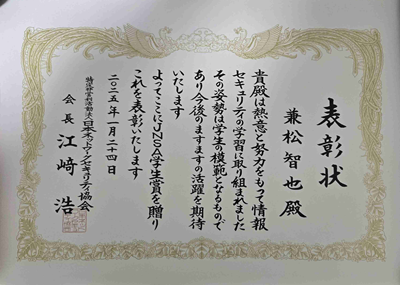 表彰状
兼松智也殿
貴殿は熱意と努力をもって情報
セキュリティの学習に取り組まれました
その姿勢は学生の模範となるもので
あり今後のますますの活躍を期待
いたします
よってここにJNSA学生賞を贈り
これを表彰いたします
二〇二五年一月二十四日
特定非営利活動法人日本ネットワークセキュリティ協会
会長 江﨑 浩